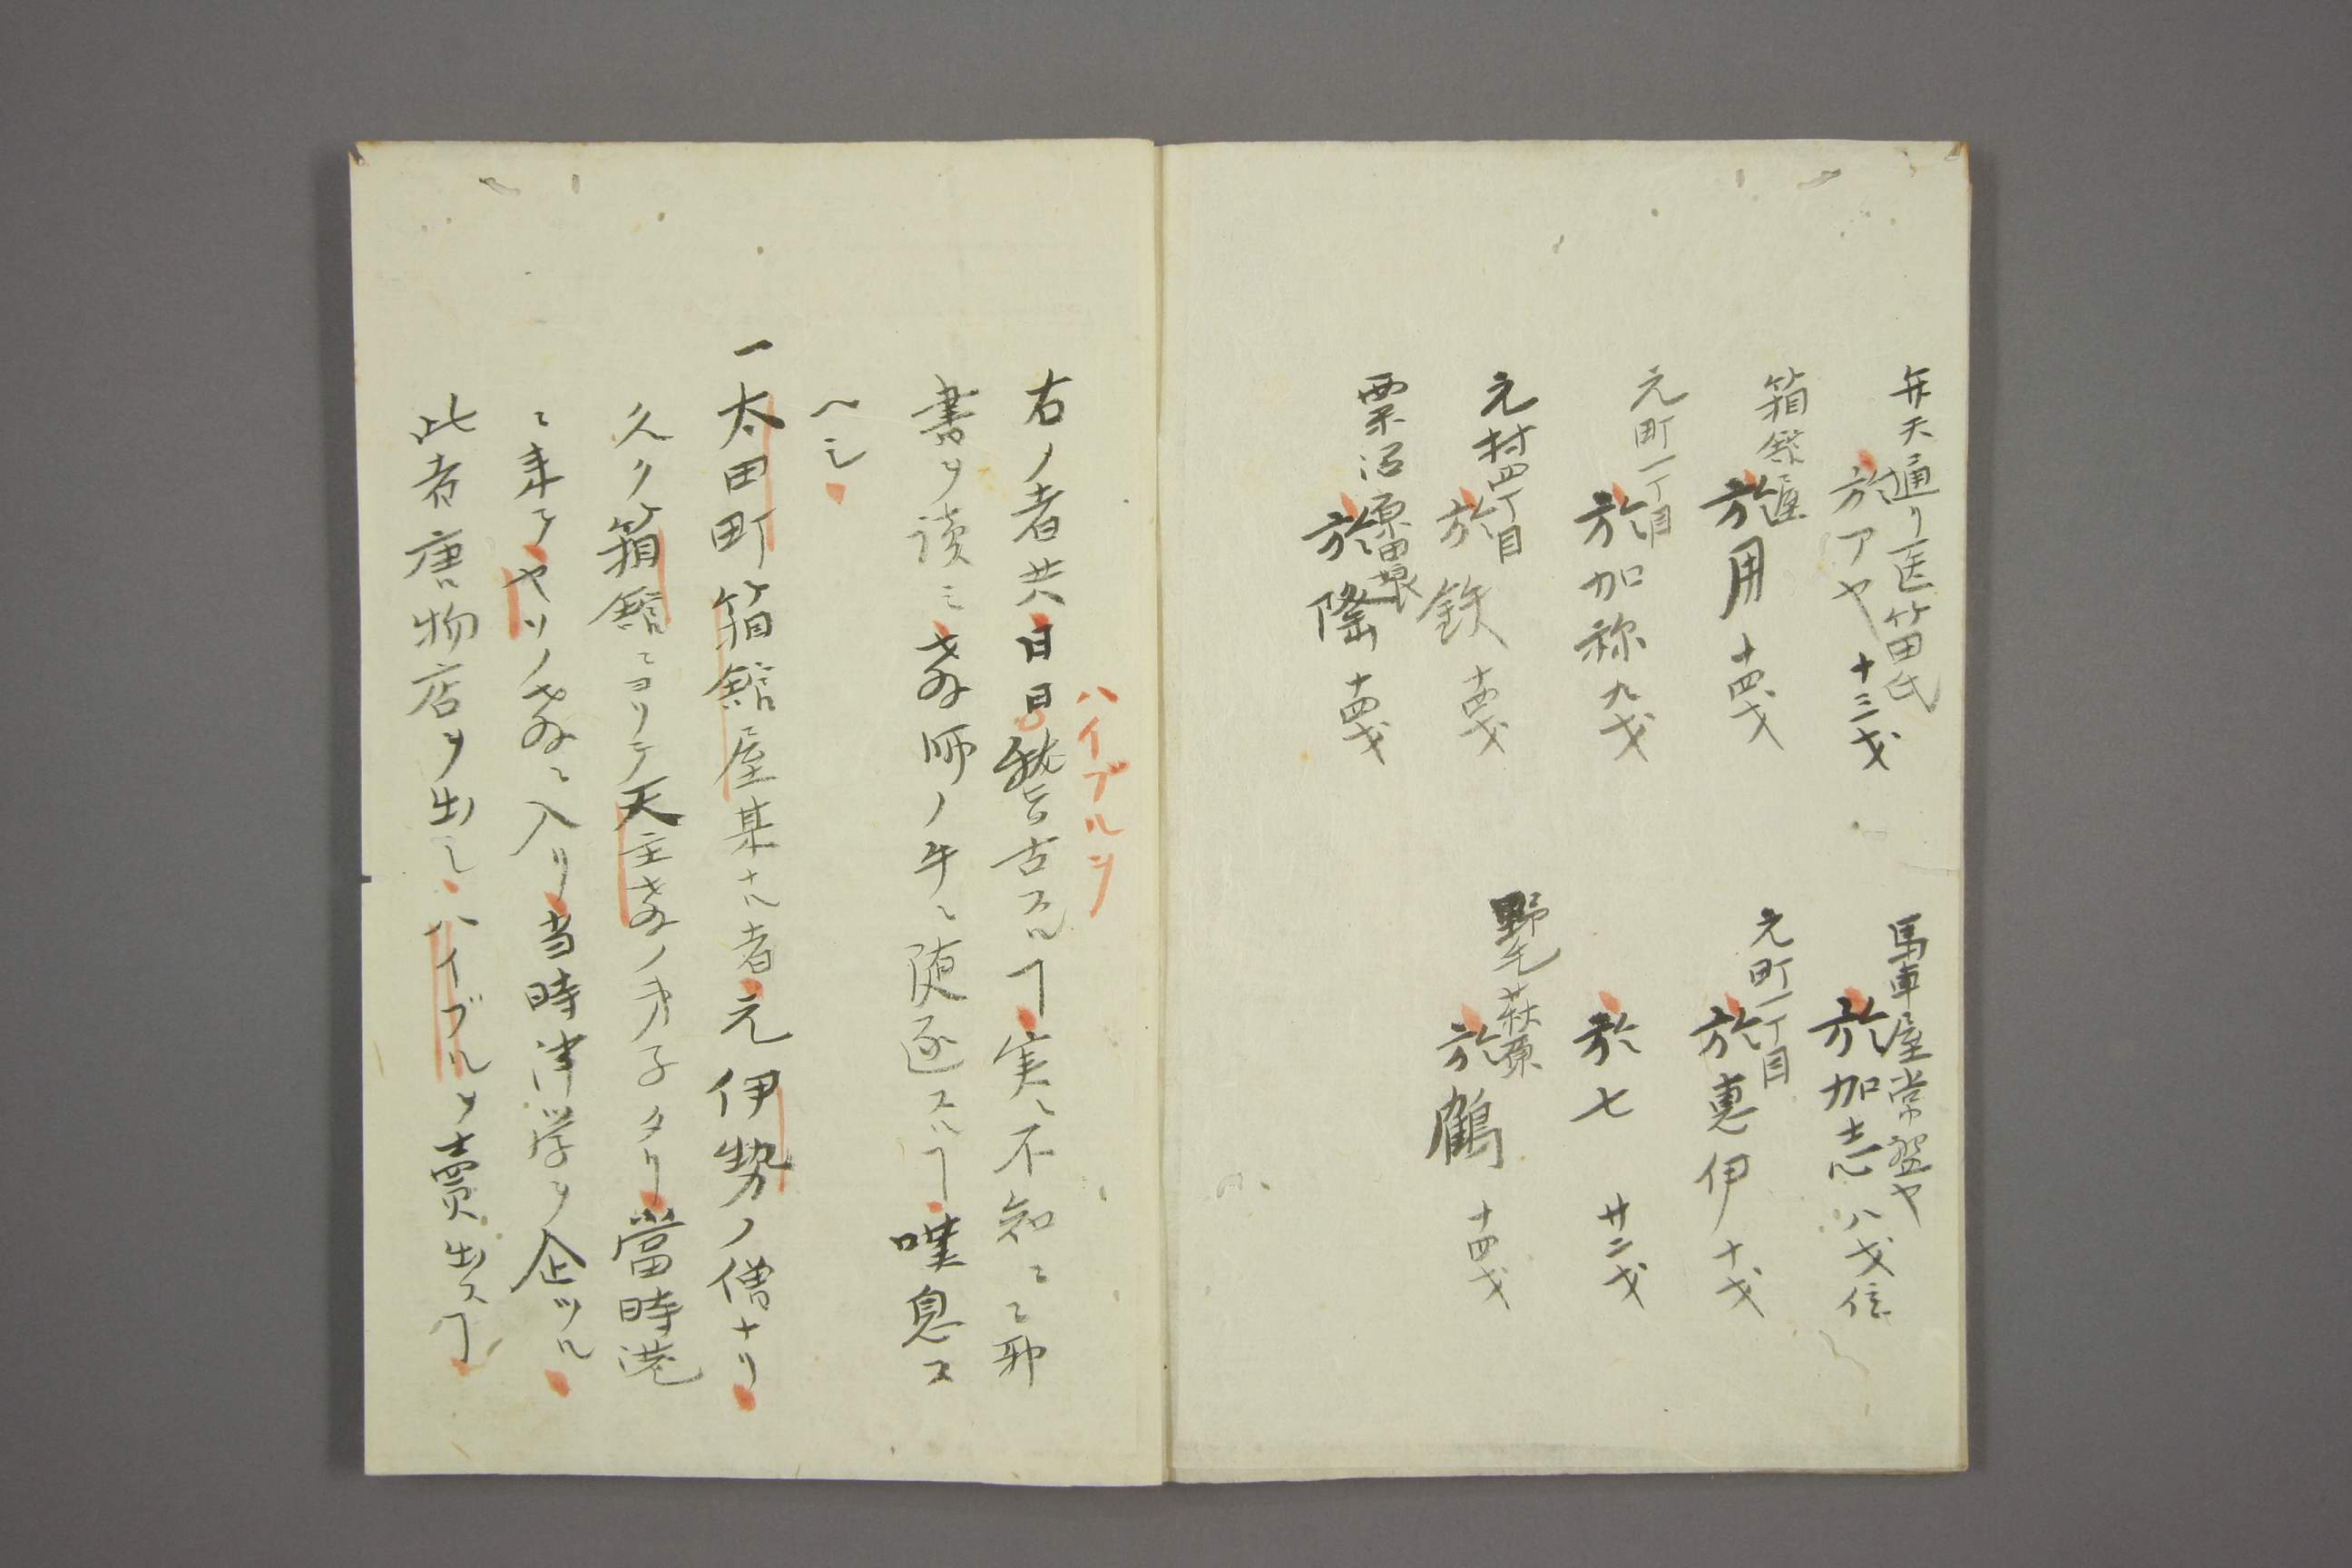 弁天通リ医箱田氏
於アヤ 十三才
馬車屋常盤や
於加志 八才 信
箱館屋
於用 十四才
元町一丁目
於恵伊 十才
元町一丁目
於加祢 九才
於七 廿二才
元村四丁目
於鉄 十四才
野毛萩原
於鶴 十四才
栗沼原田
於隆 十四才
ハイブルヲ
右ノ者共日日稽古スルヿ実ニ不知ニ〻邪
書ヲ読ミ教師ノ牛ニ随逐スルヿ嘆息ス
ヘシ
一太田町箱館屋某ナル者元伊勢ノ僧ナリ
久ク箱館ニヨリテ天主教ノ弟子タリ當時港
ニ来テヤソノ教ニ入リ当時洋学ヲ企ツル
此者唐物店ヲ出シハイブルヲ賣出スヿ